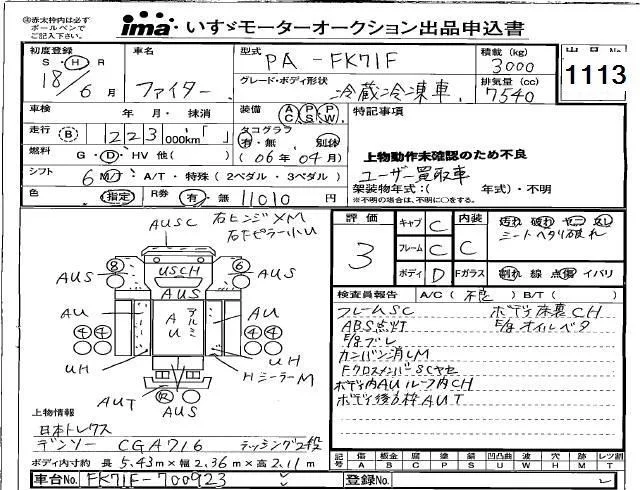 ④赤太枠内は必ず
ボールペンで
ご記入下さい。
ima いすゞモーターオークション出品申込書
初度登録 S・H・R 18/6月
車名 ファイター
型式 PA-FK71F
グレード・ボディ形状 冷蔵冷凍車
積載(kg) 3000
排気量(cc) 7540
1113
車検 年 月・ 抹消
装備 AC PS PW
特記事項
走行 B 223,000km「 」
タコグラフ 有・無 別体
(06年04月)
燃料 G・D・HV 他( )
シフト 6 M/T・A/T・特殊(2ペダル・3ペダル)
色 指定 R券 有・無 11010円
上物動作未確認のため不良
ユーザー買取車
架装物年式:( 年式)・不明
※不明の場合は、不明に○をする。
AUSC
右ヒンジXM
右Fピラー小U
8 6
USCH
AUS AUS AUS
AU アルミ AU AU
4 4 4 4
UH UH
HミラーM
AUT R AUS
評価 3
キャブ C 内装 C
フレーム C
ボディ D Fガラス
汚れ 破れ ヤニ 臭い
シートヘタリ破れ
割れ 線 点傷 イバリ
検査員報告 A/C(不良) B/T( )
フレームSC ボデー床裏CH
ABS点灯 E/gオイルベタ
E/gブレ
カンバン消しM
FクロスメンバーSCヤセ
ボデー内AUルーフ内CH
ボデー後方枠AUT
上物情報
日本トレクス
デンソー CGA716 ラッシング2段
ボディ内寸約 長5.43m×幅2.36m×高2.11m
記号 傷A 板金B 腐C 塗P 錆S 凹凸曲U 波W 穴H 跡M レンズ割T
車台No. FK71F-700923
登録No.